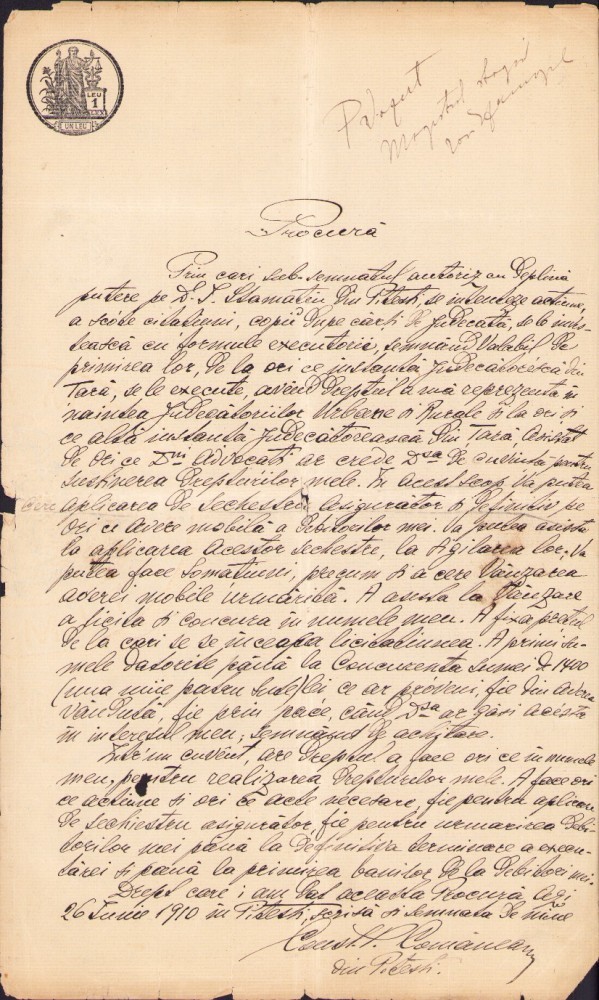 LEU
1
UN LEU
Procură
Prin care sub-semnatul autoriz cu deplină
putere pe D. I. Stamatiu din Pitesti, se intenteze actiune,
a scóte citatiuni, copii dupe cărti de Judecată, se le inves-
tească cu formule executorie, semnând valabil de
primirea lor, de la ori ce instantă Judecatorécă din
Tară, se le execute, avênd dreptul a mă reprezenta în
naintea Judecatoriilor Urbane si Rurale si la ori si
ce altă instantă Judecătorească din Tară, asistat
de ori ce Dni Advocati ar crede Dsa de cuviintă pentru
sustinerea drepturilor mele. În acest scop va putea
cere aplicarea de sechestru asigurător si definitiv pe
ori ce avere mobilă a debitorilor mei. Va putea asista
la aplicarea acestor sechestre, la sigilarea lor. Va
putea face somatiuni, precum si a cere vânzarea
averei mobile urmăribilă. A asista la vânzare
a licita si concura în numele meu. A fixa pretul
de la cari se se înceapa licitatiunea. A primi su-
mele datorate până la concurenta sumei de 1400
(una mie patru sute) lei ce ar proveni, fie din averea
vândută, fie prin pace, când Dsa ar găsi acésta
în interesul meu, semnând de achitare.
Într'un cuvênt, are dreptul a face ori ce în numele
meu, pentru realizarea drepturilor mele. A face ori
ce actiune si ori ce acte necesare, fie pentru aplicare
de sechestru asigurător, fie pentru urmarirea debi-
torilor mei până la definitiva terminare a execu-
tărei si până la primirea banilor de la debitorii mei.
Drept care i am dat aceasta Procură, adi
26 Iunie 1910 în Pitesti, scrisă si semnata de mine
Const. Comăneanu
din Pitesti.